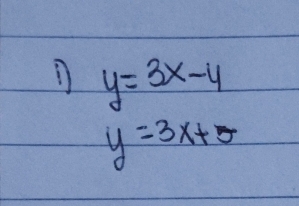 1) y=3x-4
y=3x+5